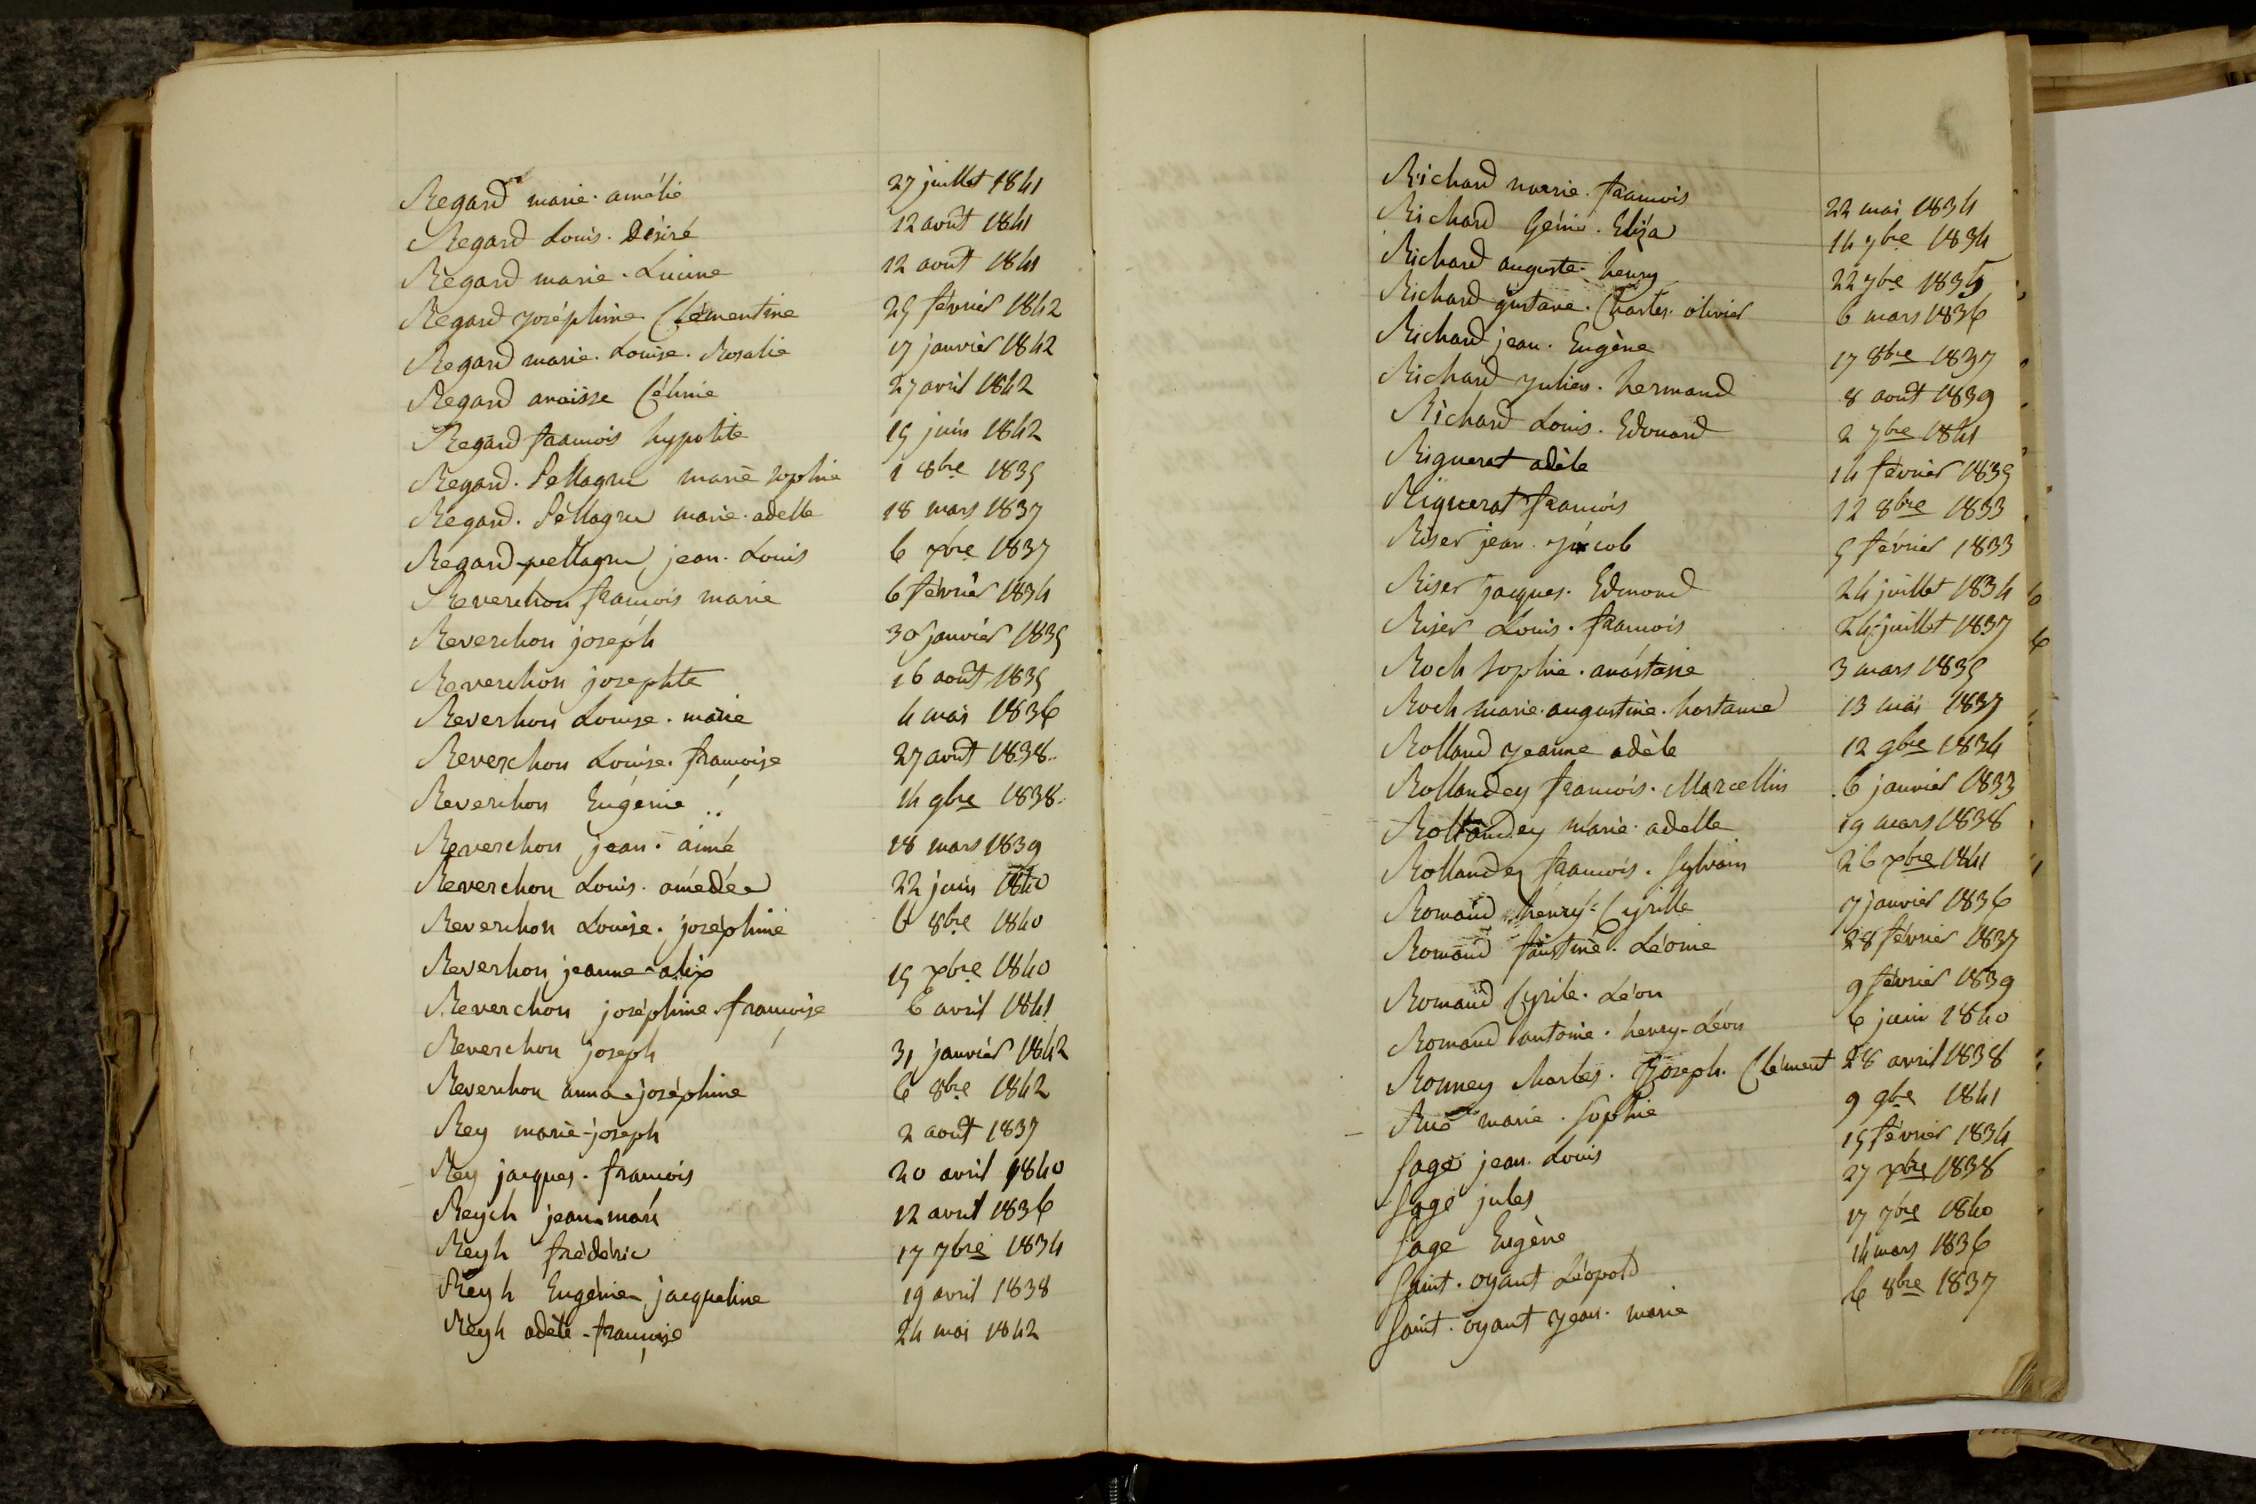 Regard marie. amélie 27 juillet 1841
Regard Louis. Désiré 12 août 1841
Regard marie. Lucine 12 août 1841
Regard Joséphine Clémentine 25 février 1842
Regard marie. Louise. Rosalie 17 janvier 1842
Regard anaïsse Célinie 27 avril 1842
Regard francois hypolite 15 juin 1842
Regard. Pellagru marie sophie 1 8bre 1835
Regard. Pellagru marie. adelle 18 mars 1837
Regard-pellagru jean. Louis 6 xbre 1837
Reverchon francois marie 6 février 1834
Reverchon joseph 30 janvier 1835
Reverchon josephte 16 août 1835
Reverhon Louise. marie 4 mai 1836
Reverchon Louise. francoise 27 août 1838
Reverchon Eugénie 14 9bre 1838
Reverchon jean. aimé 18 mars 1839
Reverchon Louis. amédée 22 juin 1840
Reverchon Louise. joséphine 6 8bre 1840
Reverhon jeanne-alix 15 xbre 1840
Reverchon joséphine. françoise 6 avril 1841
Reverchon joseph 31 janvier 1842
Reverchon anna-joséphine 6 8bre 1842
Rey marie-joseph 2 août 1837
Rey jacques. francois 20 avril 1840
Reych jean-marc 12 avril 1836
Reyh frédéric 17 7bre 1834
Reyh Eugénie jacqueline 19 avril 1838
Reyh adèle-françoise 24 mai 1842
Richard marie. francois 22 mai 1834
Richard Génie. Eliza 14 7bre 1834
Richard auguste. henry 22 7bre 1835
Richard gustave. Charles. olivier 6 mars 1836
Richard jean. Eugène 17 8bre 1837
Richard Julien. hermand 8 août 1839
Richard Louis. Edouard 2 7bre 1841
Riguerat adèle 14 février 1835
Riguerat francois 12 8bre 1833
Riser jean. Jacob 5 février 1833
Riser Jacques. Edmond 24 juillet 1834
Riser Louis. francois 24 juillet 1837
Roch Sophie. anastasie 3 mars 1835
Roch marie. augustine. hortance 13 mai 1837
Rolland Jeanne adèle 12 9bre 1834
Rollandey francois. Marcellin 6 janvier 1833
Rollandey marie. adelle 19 mars 1838
Rollandey francois. Sylvain 26 xbre 1841
Romand henry-Cyrille 7 janvier 1836
Romand faustine. Léonie 28 février 1837
Romand Cyrile. Léon 9 février 1839
Romand antonie. henry-Léon 6 juin 1840
Ronney Charles. Joseph. Clément 28 avril 1838
Rue marie. Sophie 9 9bre 1841
Sage jean. Louis 15 février 1834
Sage jules 27 xbre 1838
Sage Eugène 17 7bre 1840
Saint. oyant Léopold 14 mars 1836
Saint. oyant Jean. marie 6 8bre 1837